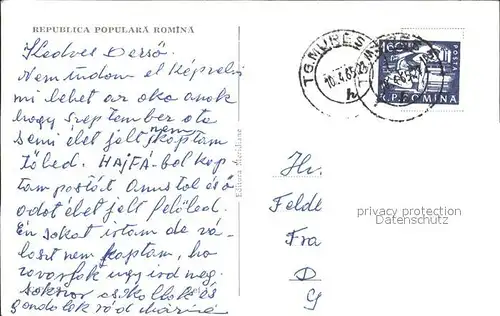 REPUBLICA POPULARĂ ROMÎNĂ
Kedves Dezső.
Nem tudom el képzelni
mi lehet az oka anok
hogy szeptember óta
semi élet jelt nem kaptam
Tőled. HAJFÁ-ból kap
tam postát
odot élet jelt felőled.
Én sokat írtam de vá-
laszt nem kaptam, ha
írd meg.
sokszor csókollak és
gondolok rád
Editura Meridiane
TG. MUREȘ
POSTA
R.P. ROMINA
Hr.
Feldb
Fra
D
privacy protection
Datenschutz